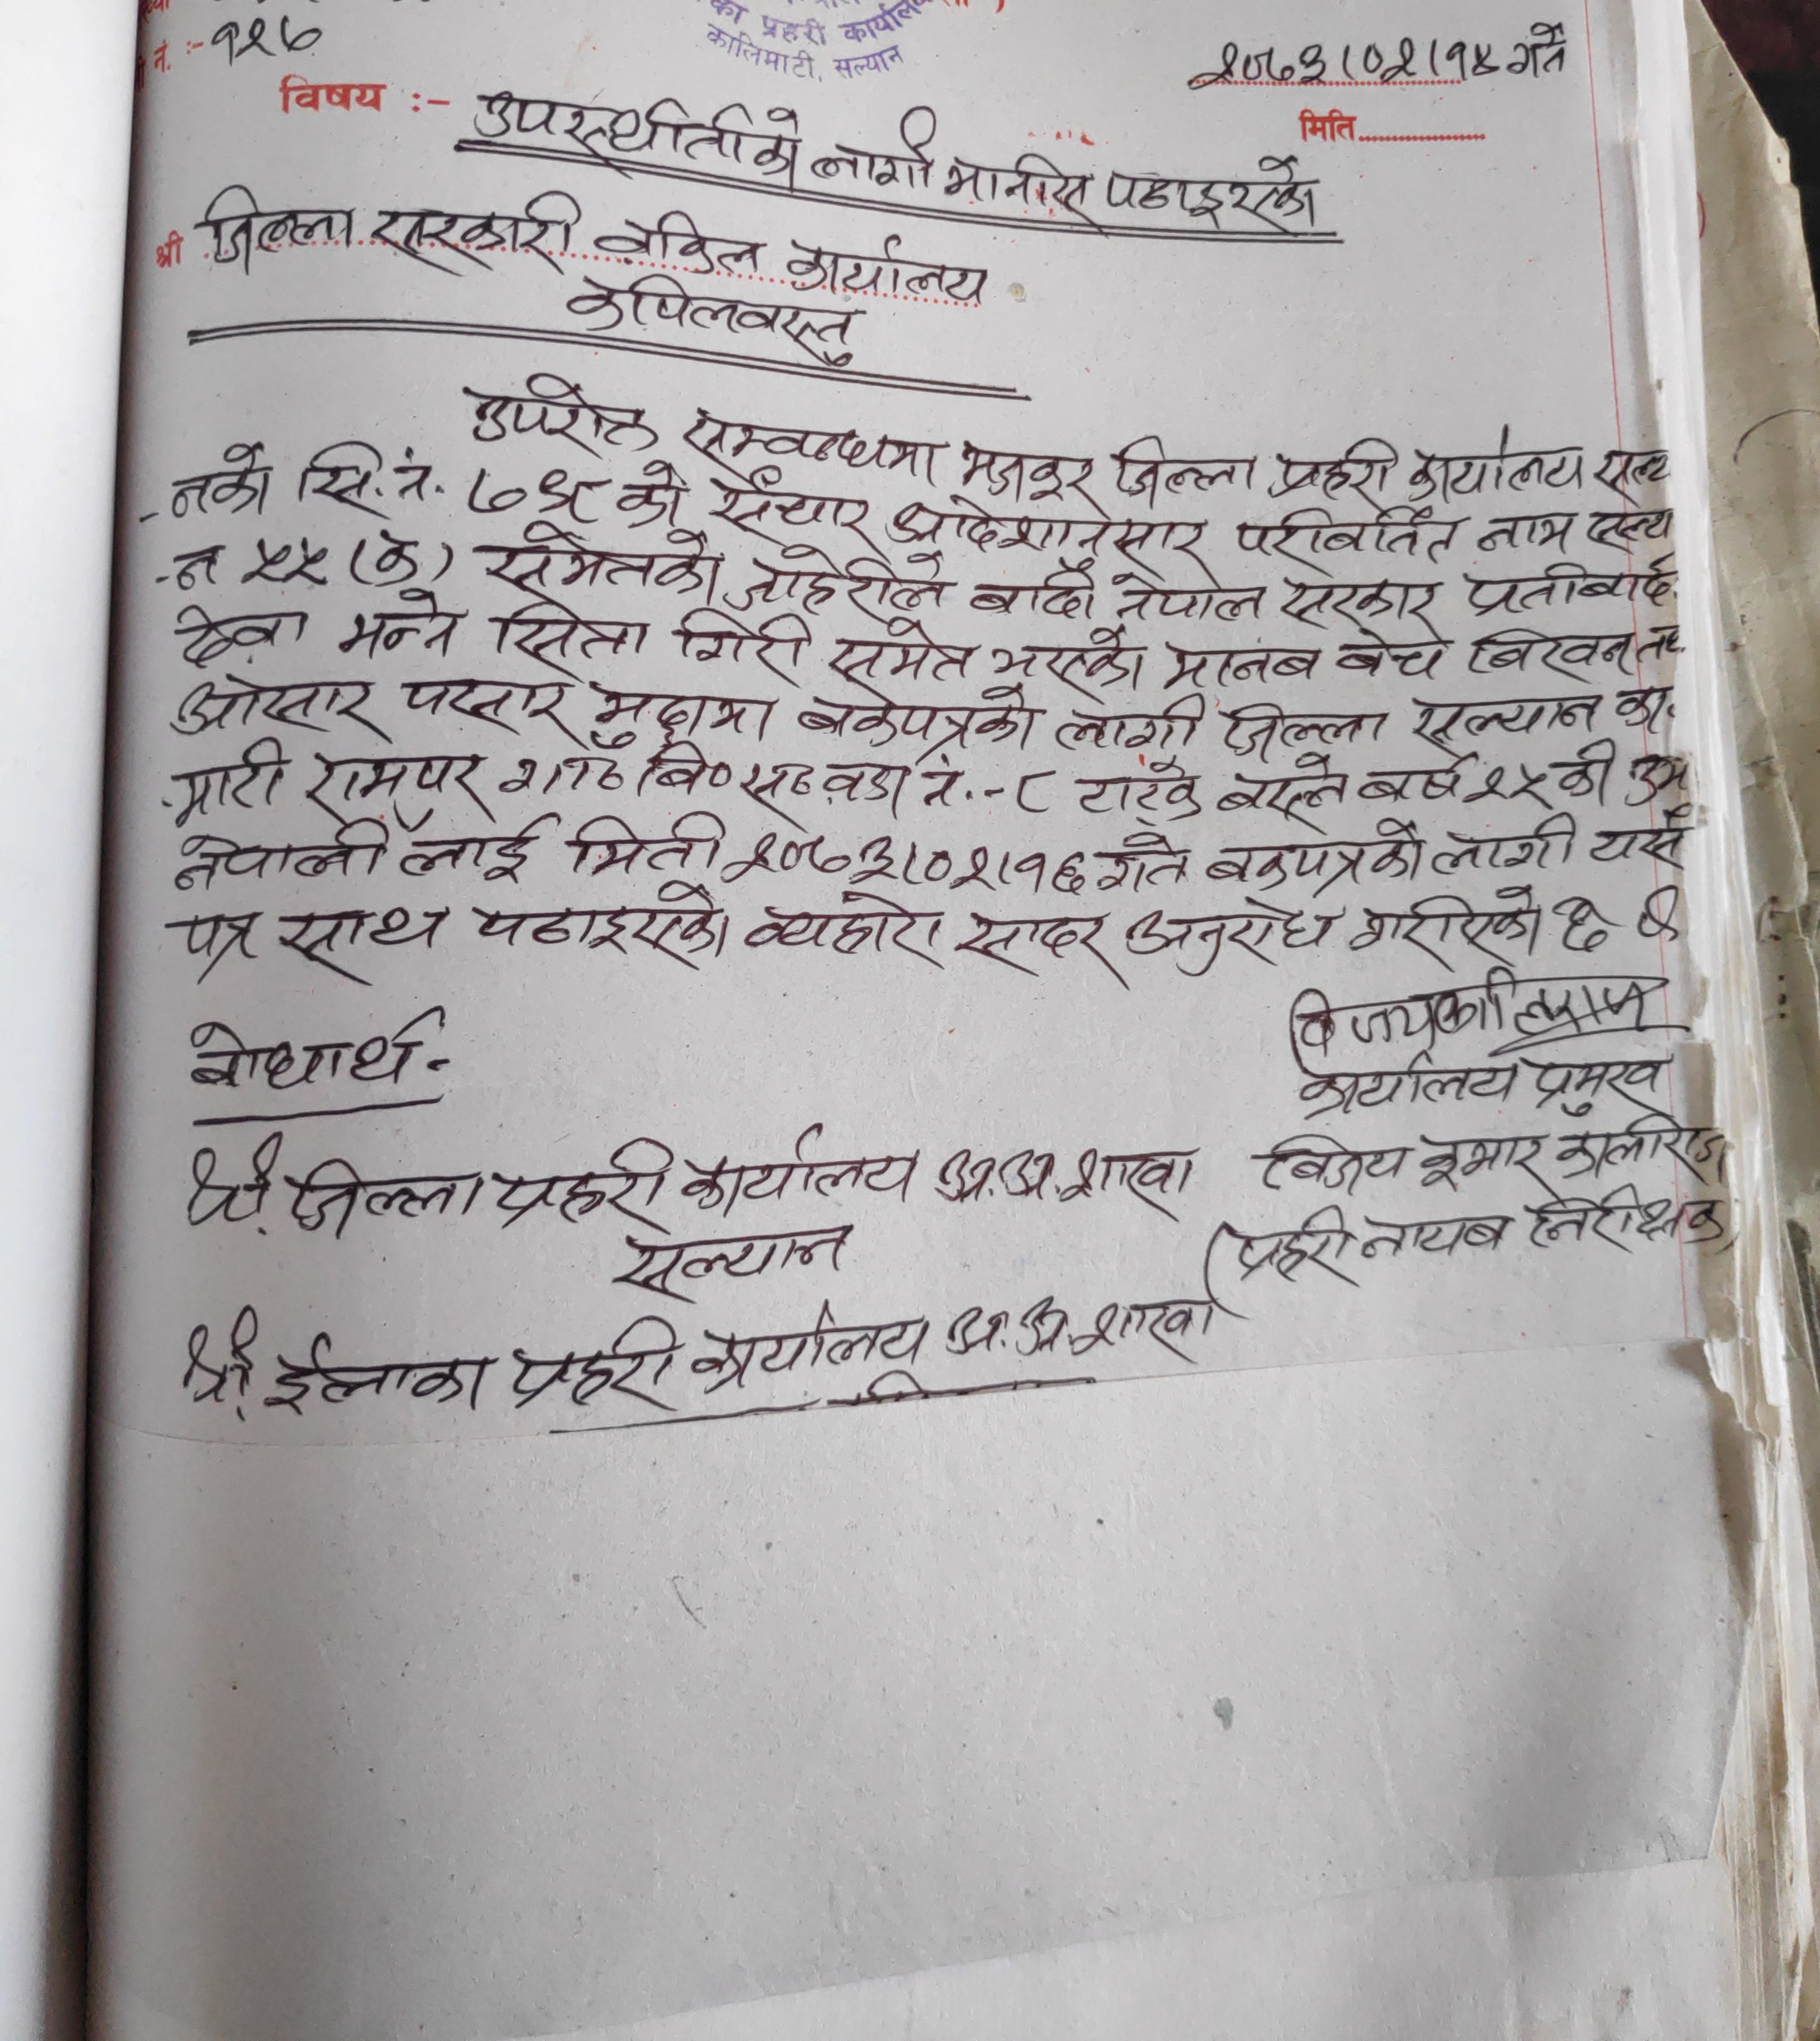 का प्रहरी कार्यालय
कालिमाटी, सल्यान
नं. :- १२७
२०७३।०२।१४ गते
विषय :- उपस्थीतीको लागी मानीस पठाइएको
मिति
श्री जिल्ला सरकारी वकिल कार्यालय
कपिलवस्तु
उपरोक्त सम्वन्धमा मजकुर जिल्ला प्रहरी कार्यालय सल्य
-नको सि.नं. ७५९ को संचार आदेशानुसार परीवर्तित नाम सल्य
-न ५५ (क) समेतको जाहेरीले बादी नेपाल सरकार प्रतीबादि
देबा भन्ने सिता गिरी समेत भएको मानब बेच बिखन तथ
ओसार पसार मुद्दामा बकपत्रको लागी जिल्ला सल्यान का
-माटी रामपुर गा०बि०स० वडा नं.-८ टाट्के बस्ने बर्ष २५ की उम
नेपाली लाई मिती २०७३।०२।१६ गते बकपत्रको लागी यसै
पत्र साथ पठाइएको व्यहोरा सादर अनुरोध गरीएको छ
कार्यालय प्रमुख
बोधार्थ-
श्री जिल्ला प्रहरी कार्यालय अ.अ. शाखा
बिजय कुमार कालीराज
सल्यान
(प्रहरी नायब निरीक्षक)
श्री ईलाका प्रहरी कार्यालय अ.अ. शाखा